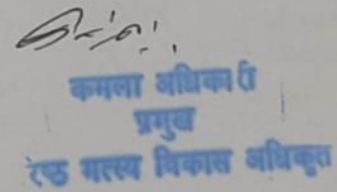 कमला अधिकारी
प्रमुख
मत्स्य विकास अधिकृत